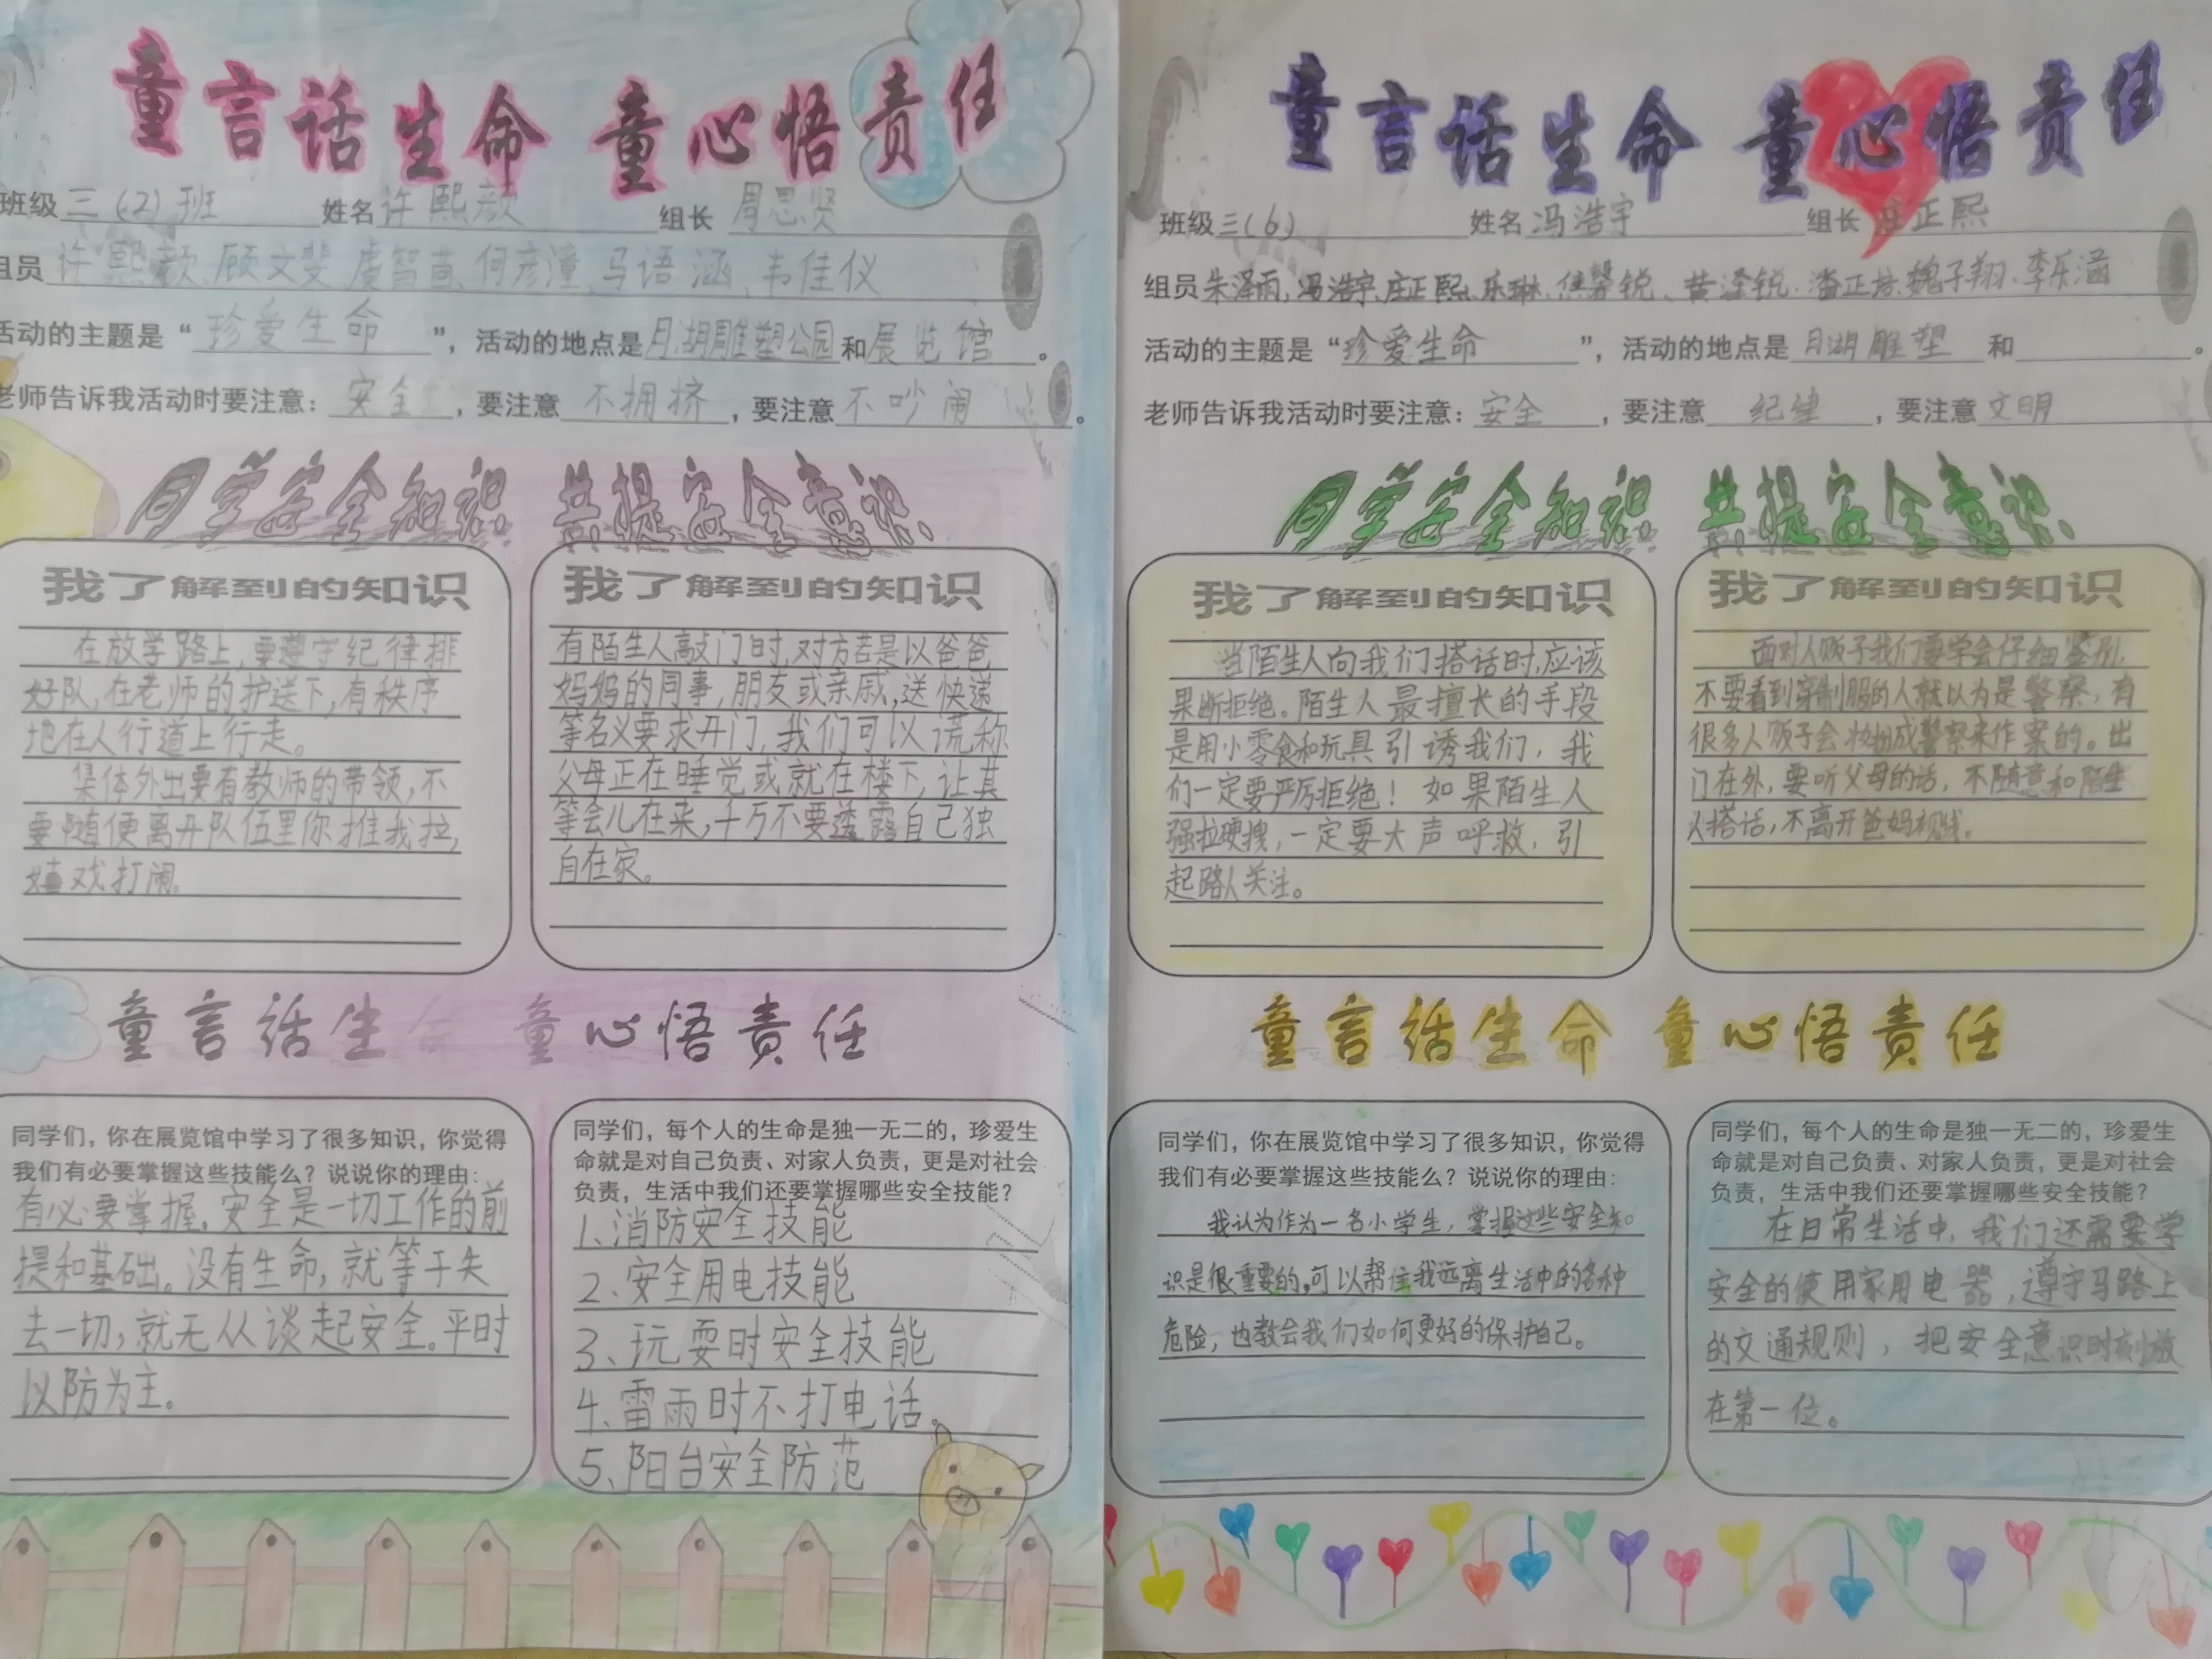 童言话生命 童心悟责任
班级 三(2)班 姓名 许熙颜 组长 周思贤
组员 许熙颜、顾文斐、虞智茜、何彦潼、马语涵、韦佳仪
活动的主题是“珍爱生命”，活动的地点是月湖雕塑公园和展览馆。
老师告诉我活动时要注意：安全，要注意不拥挤，要注意不吵闹。
同学安全知识 共提安全意识
我了解到的知识
在放学路上，要遵守纪律排
好队，在老师的护送下，有秩序
地在人行道上行走。
集体外出要有教师的带领，不
要随便离开队伍里你推我拉，
嬉戏打闹。
我了解到的知识
有陌生人敲门时，对方若是以爸爸
妈妈的同事，朋友或亲戚，送快递
等名义要求开门，我们可以谎称
父母正在睡觉或就在楼下，让其
等会儿在来，千万不要透露自己独
自在家。
童言话生 童心悟责任
同学们，你在展览馆中学习了很多知识，你觉得
我们有必要掌握这些技能么？说说你的理由：
有必要掌握。安全是一切工作的前
提和基础。没有生命，就等于失
去一切，就无从谈起安全。平时
以防为主。
同学们，每个人的生命是独一无二的，珍爱生
命就是对自己负责、对家人负责，更是对社会
负责，生活中我们还要掌握哪些安全技能？
1、消防安全技能
2、安全用电技能
3、玩耍时安全技能
4、雷雨时不打电话。
5、阳台安全防范
童言话生命 童心悟责任
班级 三(6) 姓名 冯浩宇 组长 庄正熙
组员 朱泽雨、冯浩宇、庄正熙、乐琳、黄泽锐、魏子翔、李乐涵
活动的主题是“珍爱生命”，活动的地点是月湖雕塑和 。
老师告诉我活动时要注意：安全，要注意 纪律，要注意文明
同学安全知识 共提安全意识
我了解到的知识
当陌生人向我们搭话时，应该
果断拒绝。陌生人最擅长的手段
是用小零食和玩具引诱我们，我
们一定要严厉拒绝！如果陌生人
强拉硬拽，一定要大声呼救，引
起路人关注。
我了解到的知识
面对人贩子我们要学会仔细鉴别，
不要看到穿制服的人就以为是警察，有
很多人贩子会妆扮成警察来作案的。出
门在外，要听父母的话，不随意和陌生
人搭话，不离开爸妈视线。
童言话生命 童心悟责任
同学们，你在展览馆中学习了很多知识，你觉得
我们有必要掌握这些技能么？说说你的理由：
我认为作为一名小学生，掌握这些安全知
识是很重要的，可以帮住我远离生活中的各种
危险，也教会我们如何更好的保护自己。
同学们，每个人的生命是独一无二的，珍爱生
命就是对自己负责、对家人负责，更是对社会
负责，生活中我们还要掌握哪些安全技能？
在日常生活中，我们还需要学
安全的使用家用电器，遵守马路上
的交通规则，把安全意识时刻放
在第一位。